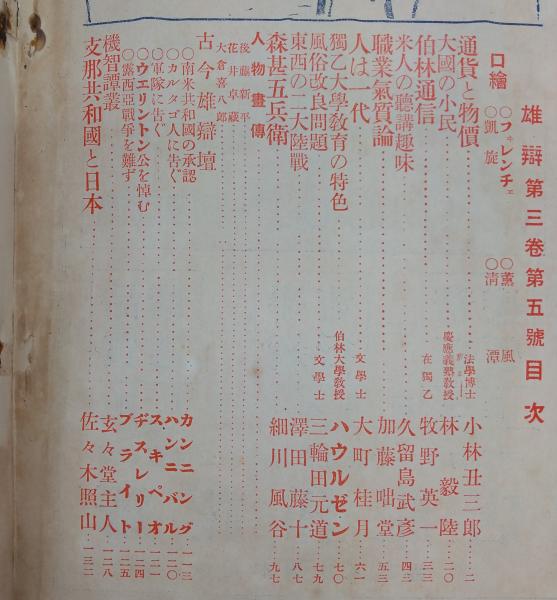 雄辯第三卷第五號目次
口繪 ○フレンチェ ○薫風
○凱旋 ○清潭
通貨と物價 法學博士 小林丑三郎 二
大國の小民 慶應義塾教授 林毅陸 二〇
伯林通信 在獨乙 牧野英一 三三
米人の聽講趣味 久留島武彦 四三
職業氣質論 加藤咄堂 五三
人は一代 文學士 大町桂月 六一
獨乙大學教育の特色 伯林大學教授 ハウルゼン 七〇
風俗改良問題 文學士 三輪田元道 七九
東西の二大陸戰 澤田藤十 八七
森甚五兵衛 細川風谷 九七
人物畫傳
後藤新平
花井卓藏
大倉喜八郎
古今雄辯壇
○南米共和國の承認 カンニング 一一三
○カルタゴ人に告ぐ ハンニバル 一二〇
○軍隊に告ぐ スキペオ 一二一
○ウエリントン公を悼む ヂスレリー 一二四
○露西亞戰爭を難ず ブライト 一二五
機智譚叢 玄々堂主人 一二八
支那共和國と日本 佐々木照山 一三一